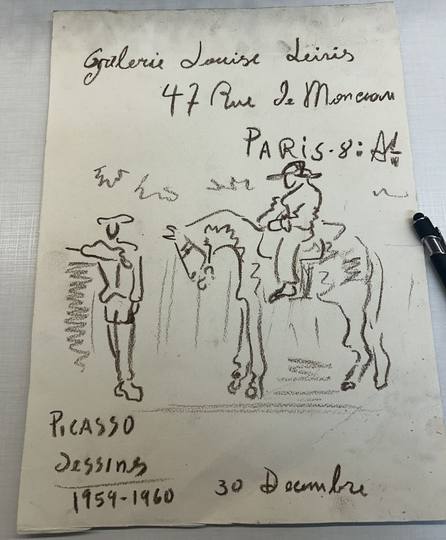 Galerie Louise Leiris
47 Rue de Monceau
PARIS-8: At
PICASSO
Dessins
1959-1960
30 Decembre